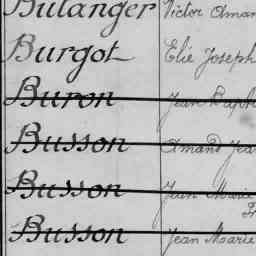 Bulanger Victor Aman
Burgot Elie Joseph
Buron Jean Raph
Busson Amand Jea
Busson Jean Marie
Fr
Busson Jean Marie